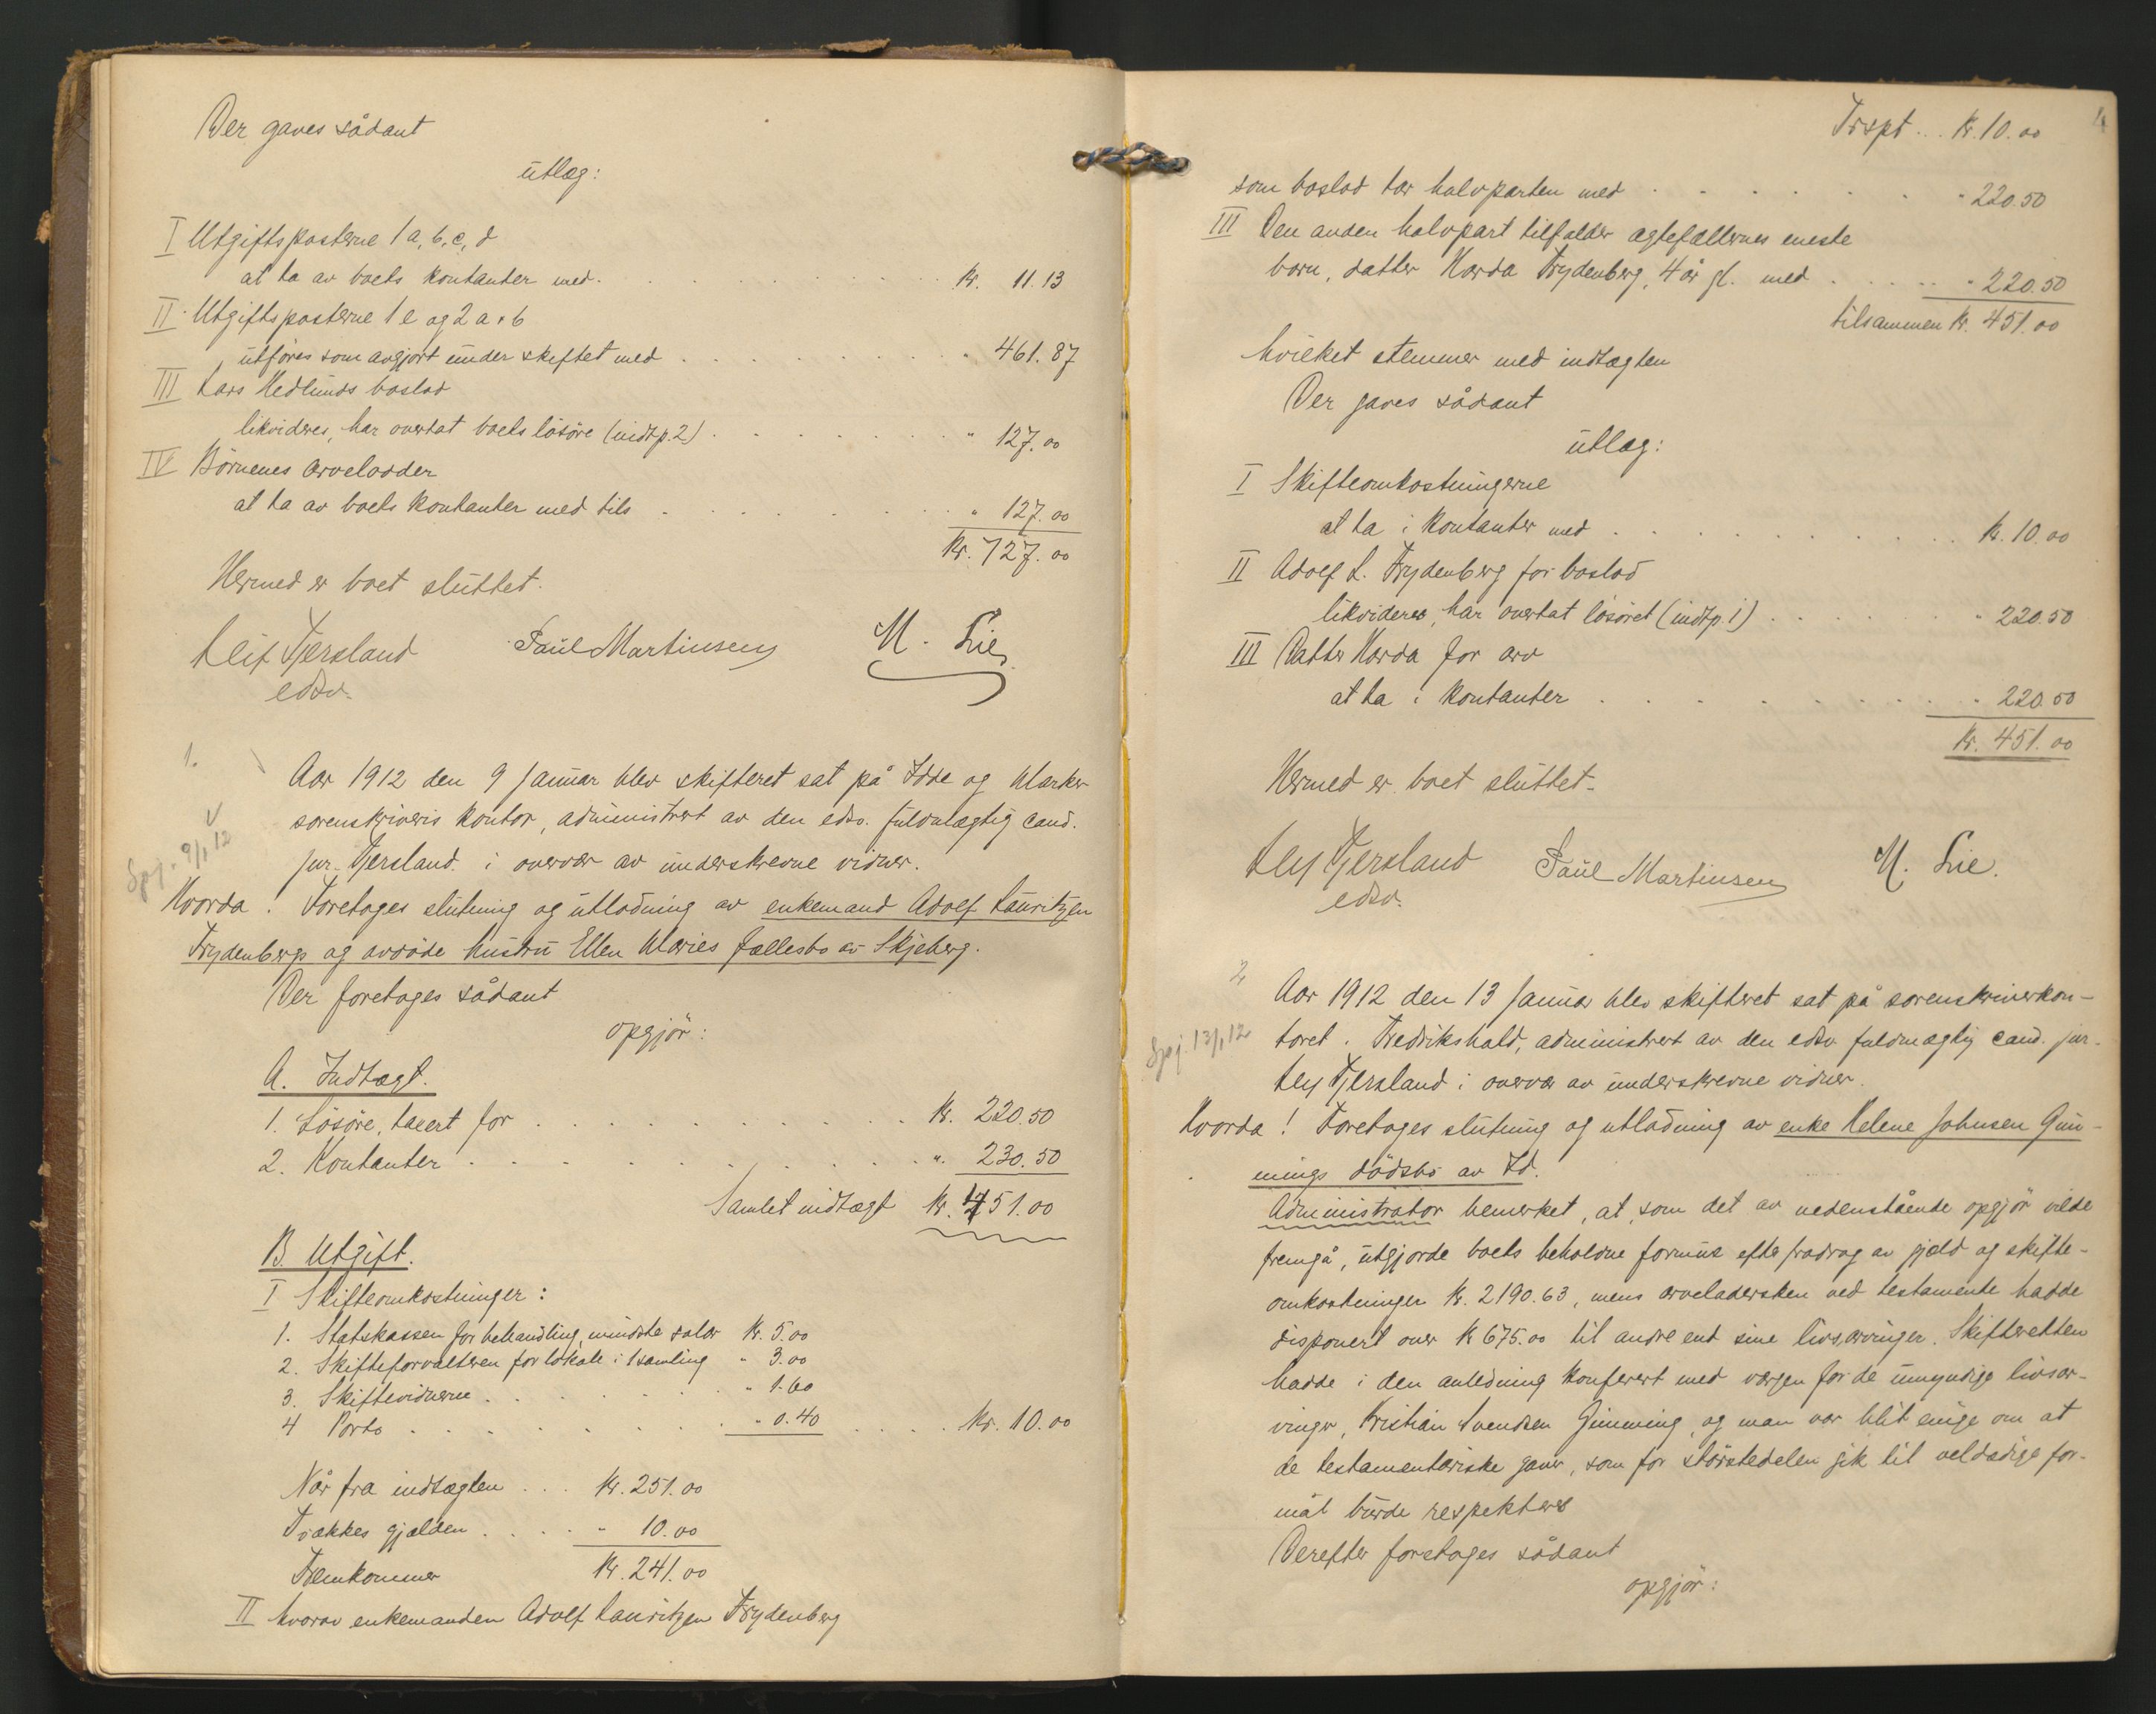 Der gaves sådant
utlæg:
I Utgiftsposterne 1 a, b, c, d
at ta av boets kontanter med . . . kr. 11.13
II Utgiftsposterne 1 e og 2 a + b
utføres som avgjort under skiftet med . . . " 461.87
III Lars Hedlunds boslod
likvideres, har overtat boets løsøre (indtp. 2) . . . " 127.00
IV Børnenes arvelodder
at ta av boets kontanter med tils . . . " 127.00
Kr. 727.00
Hermed er boet sluttet.
Leif Tjersland Paul Martinsen M. Lie
edsv.
1.
Aar 1912 den 9 Januar blev skifteret sat på Idde og Marker
sorenskriveris kontor, administrert av den edsv. fuldmægtig cand.
Spj. 9/1 12
jur. Tjersland i overvær av underskrevne vidner.
Hvorda! Foretages slutning og utlodning av enkemand Adolf Lauritzen
Frydenbergs og avdøde hustru Ellen Maries fællesbo av Skjeberg.
Der foretages sådant
opgjør:
A. Indtægt.
1. Løsøre, taxert for . . . Kr. 220.50
2. Kontanter . . . " 230.50
Samlet indtægt Kr. 451.00
B. Utgift.
I Skifteomkostninger:
1. Statskassen for behandling, mindste salær Kr. 5.00
2. Skifteforvalteren for lokale i 1 samling " 3.00
3. Skiftevidnerne . . . " 1.60
4 Porto . . . " 0.40 . . . Kr. 10.00
Når fra indtægten . . . Kr. 251.00
Trækkes gjælden . . . " 10.00
Fremkommer Kr. 241.00
II hvorav enkemanden Adolf Lauritzen Frydenberg
4
Trspt . . . Kr. 10.00
som boslod tar halvparten med . . . " 220.50
III Den anden halvpart tilfalder ægtefællernes eneste
barn, datter Harda Frydenberg, 4 år gl. med . . . " 220.50
tilsammen Kr. 451.00
hvilket stemmer med indtægten
Der gaves sådant
utlæg:
I Skifteomkostningerne
at ta i kontanter med . . . Kr. 10.00
II Adolf L. Frydenberg for boslod
likvideres, har overtat løsøret (indtp. 1) . . . " 220.50
III Datter Harda for arv
at ta i kontanter . . . " 220.50
Kr. 451.00
Hermed er boet sluttet.
Leif Tjersland Paul Martinsen M. Lie.
edsv.
2
Aar 1912 den 13 Januar blev skifteret sat på sorenskriverkon-
Spj. 13/1 12
toret i Fredrikshald, administrert av den edsv fuldmægtig cand. jur.
Leif Tjersland i overvær av underskrevne vidner.
Hvorda! Foretages slutning og utlodning av enke Helene Johnsen Gim-
mings dødsbo av Id.
Administrator bemerket, at, som det av nedenstående opgjør vilde
fremgå, utgjorde boets beholdne formue efter fradrag av gjæld og skifte-
omkostninger Kr. 2190.63, mens arveladersken ved testamente hadde
disponert over Kr 675.00 til andre end sine livsarvinger. Skifteretten
hadde i den anledning konferert med værgen for de umyndige livsar-
vinger, Kristian Svendsen Gimming, og man var blit enige om at
de testamentariske gaver, som for størstedelen gik til veldædige for-
mål burde respekteres
Derefter foretages sådant
opgjør: